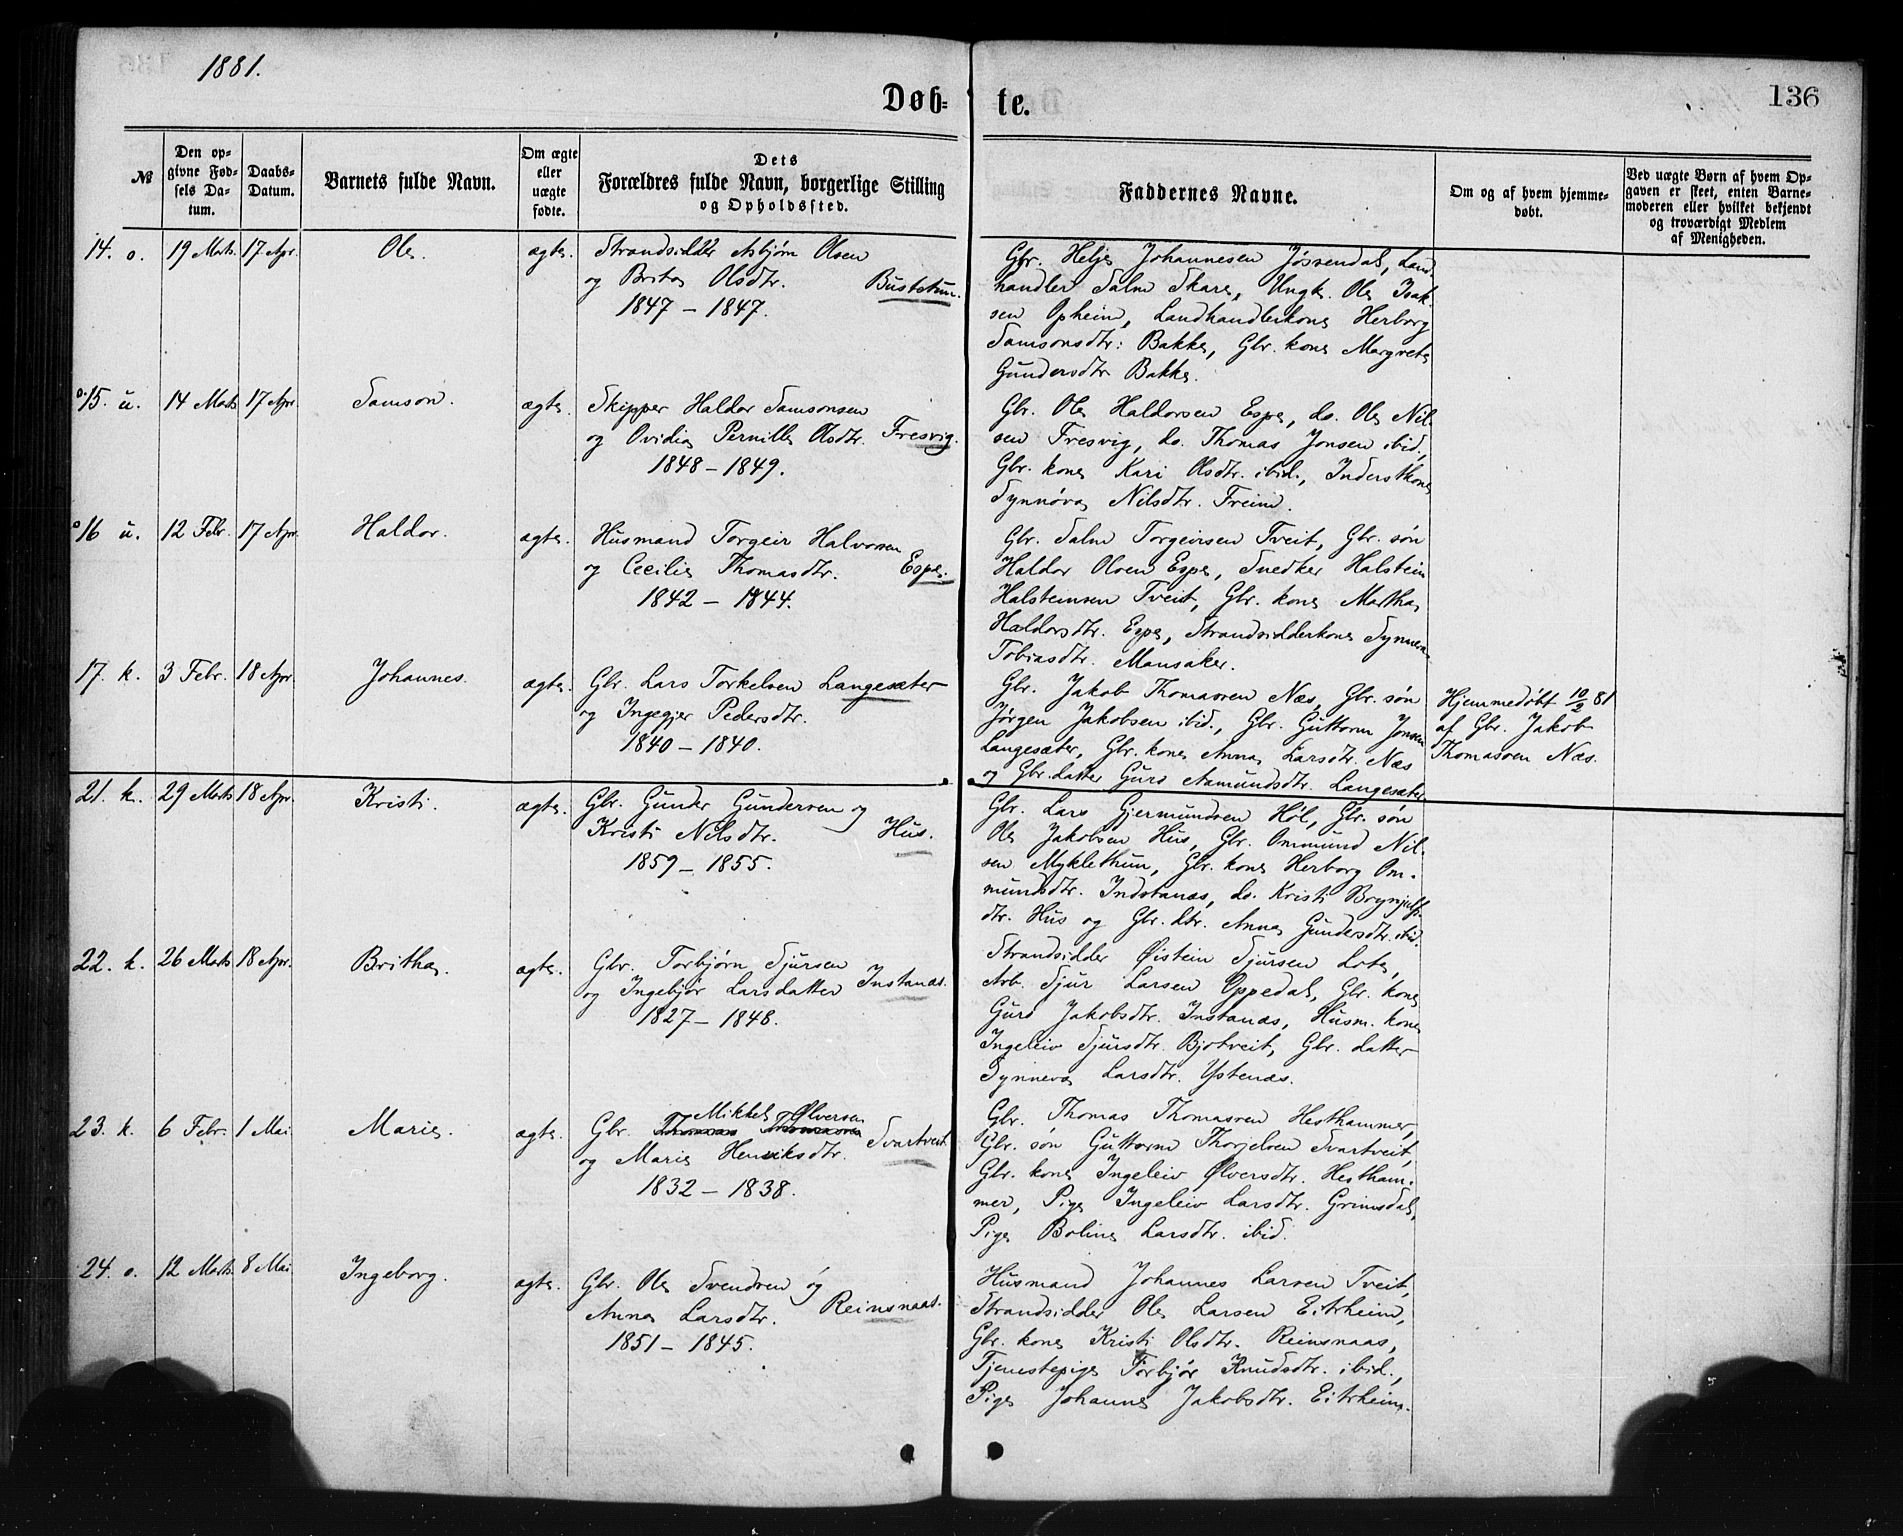 1881.
136
Døb-te.
№
Den op-
givne Fød-
sels Da-
tum.
Daabs-
Datum.
Barnets fulde Navn.
Om ægte
eller
uægte
fødte.
Dets
Forældres fulde Navn, borgerlige Stilling
og Opholdssted.
Faddernes Navne.
Om og af hvem hjemme-
døbt.
Ved uægte Børn af hvem Op-
gaven er skeet, enten Barne-
moderen eller hvilket bekjendt
og troværdigt Medlem
af Menigheden.
14. o. 19 Marts. 17 Apr. Ole. ægte. Strandsidder Asbjørn Olsen
og Brita Olsdtr. Bustetun.
1847 – 1847.
Gbr. Helje Johannesen Jøsendal, Land-
handler Salm Skare, Ungk. Ole Isak-
sen Opheim, Landhandlerkone Herborg
Samsonsdtr: Bakke, Gbr. kone Margrete
Gundersdtr Bakke.
15. u. 14 Marts 17 Apr. Samson. ægte. Skipper Haldor Samsonsen
og Ovidia Pernille Olsdtr. Fresvig.
1848 – 1849.
Gbr. Ole Haldorsen Espe, do. Ole Nil-
sen Fresvig, do. Thomas Jonsen ibid,
Gbr. kone Kari Olsdtr. ibid., Inderstkone
Synnøva Nilsdtr. Freim.
16 u. 12 Febr. 17 Apr. Haldor. ægte. Husmand Torgeir Halvorsen
og Cecilie Thomasdtr. Espe.
1842 – 1844.
Gbr. Salm Torgeirsen Tveit, Gbr. søn
Haldor Olsen Espe, Snedker Halstein
Halsteinsen Tveit, Gbr. kone Martha
Haldorsdtr. Espe, Strandsidderkone Synneva
Tobiasdtr. Mansaker.
17. k. 3 Febr. 18 Apr. Johannes. ægte. Gbr. Lars Torkelsen Langesæter
og Ingegjer Pedersdtr.
1840 – 1840.
Gbr. Jakob Thomassen Næs, Gbr. søn
Jørgen Jakobsen ibid., Gbr. Guttorm Jonsen
Langesæter, Gbr. kone Anna Larsdtr. Næs
og Gbr. datter Guro Aamundsdtr. Langesæter
Hjemmedøbt 10/2 81
af Gbr. Jakob
Thomassen Næs.
21. k. 29 Marts 18 Apr. Kristi. ægte. Gbr. Gunder Gundersen og
Kristi Nilsdtr. Hus.
1859 – 1855.
Gbr. Lars Gjermundsen Hol, Gbr. søn
Ole Jakobsen Hus, Gbr. Ommund Nil-
sen Myklethun, Gbr. kone Herborg Om-
mundsdtr. Indstanæs, do. Kristi Brynjulfs-
dtr. Hus og Gbr. dtr. Anna Gundersdtr. ibid.
22. k. 26 Marts 18 Apr. Britha. ægte. Gbr. Torbjørn Sjursen
og Ingebjør Larsdatter Instanæs.
1827 – 1848.
Strandsidder Øistein Sjursen Lote,
Arb. Sjur Larsen Oppedal, Gbr. kone
Guro Jakobsdtr. Instanæs, Husm. kone
Ingeleiv Sjursdtr. Bjotveit, Gbr. datter
Synneva Larsdtr. Ystenæs.
23. k. 6 Febr. 1 Mai. Marie. ægte. Gbr. Thomas Thomassen Mikkel Ølversen
og Marie Henriksdtr. Svartveit
1832 – 1838.
Gbr. Thomas Thomassen Hesthammer,
Gbr. søn Guttorm Thorjelsen Svartveit,
Gbr. kone Ingeleiv Ølversdtr. Hestham-
mer, Pige Ingeleiv Larsdtr. Grimsdal,
Pige Boline Larsdtr. ibid.
24. o. 12 Marts. 8 Mai. Ingeborg. ægte. Gbr. Ole Svendsen og
Anna Larsdtr. Reinsnaas.
1851 – 1845.
Husmand Johannes Larsen Tveit,
Strandsidder Ole Larsen Eitrheim,
Gbr. kone Kristi Olsdtr. Reinsnaas,
Tjenestepige Torbjør Knudsdtr. ibid.,
Pige Johanne Jakobsdtr. Eitrheim.